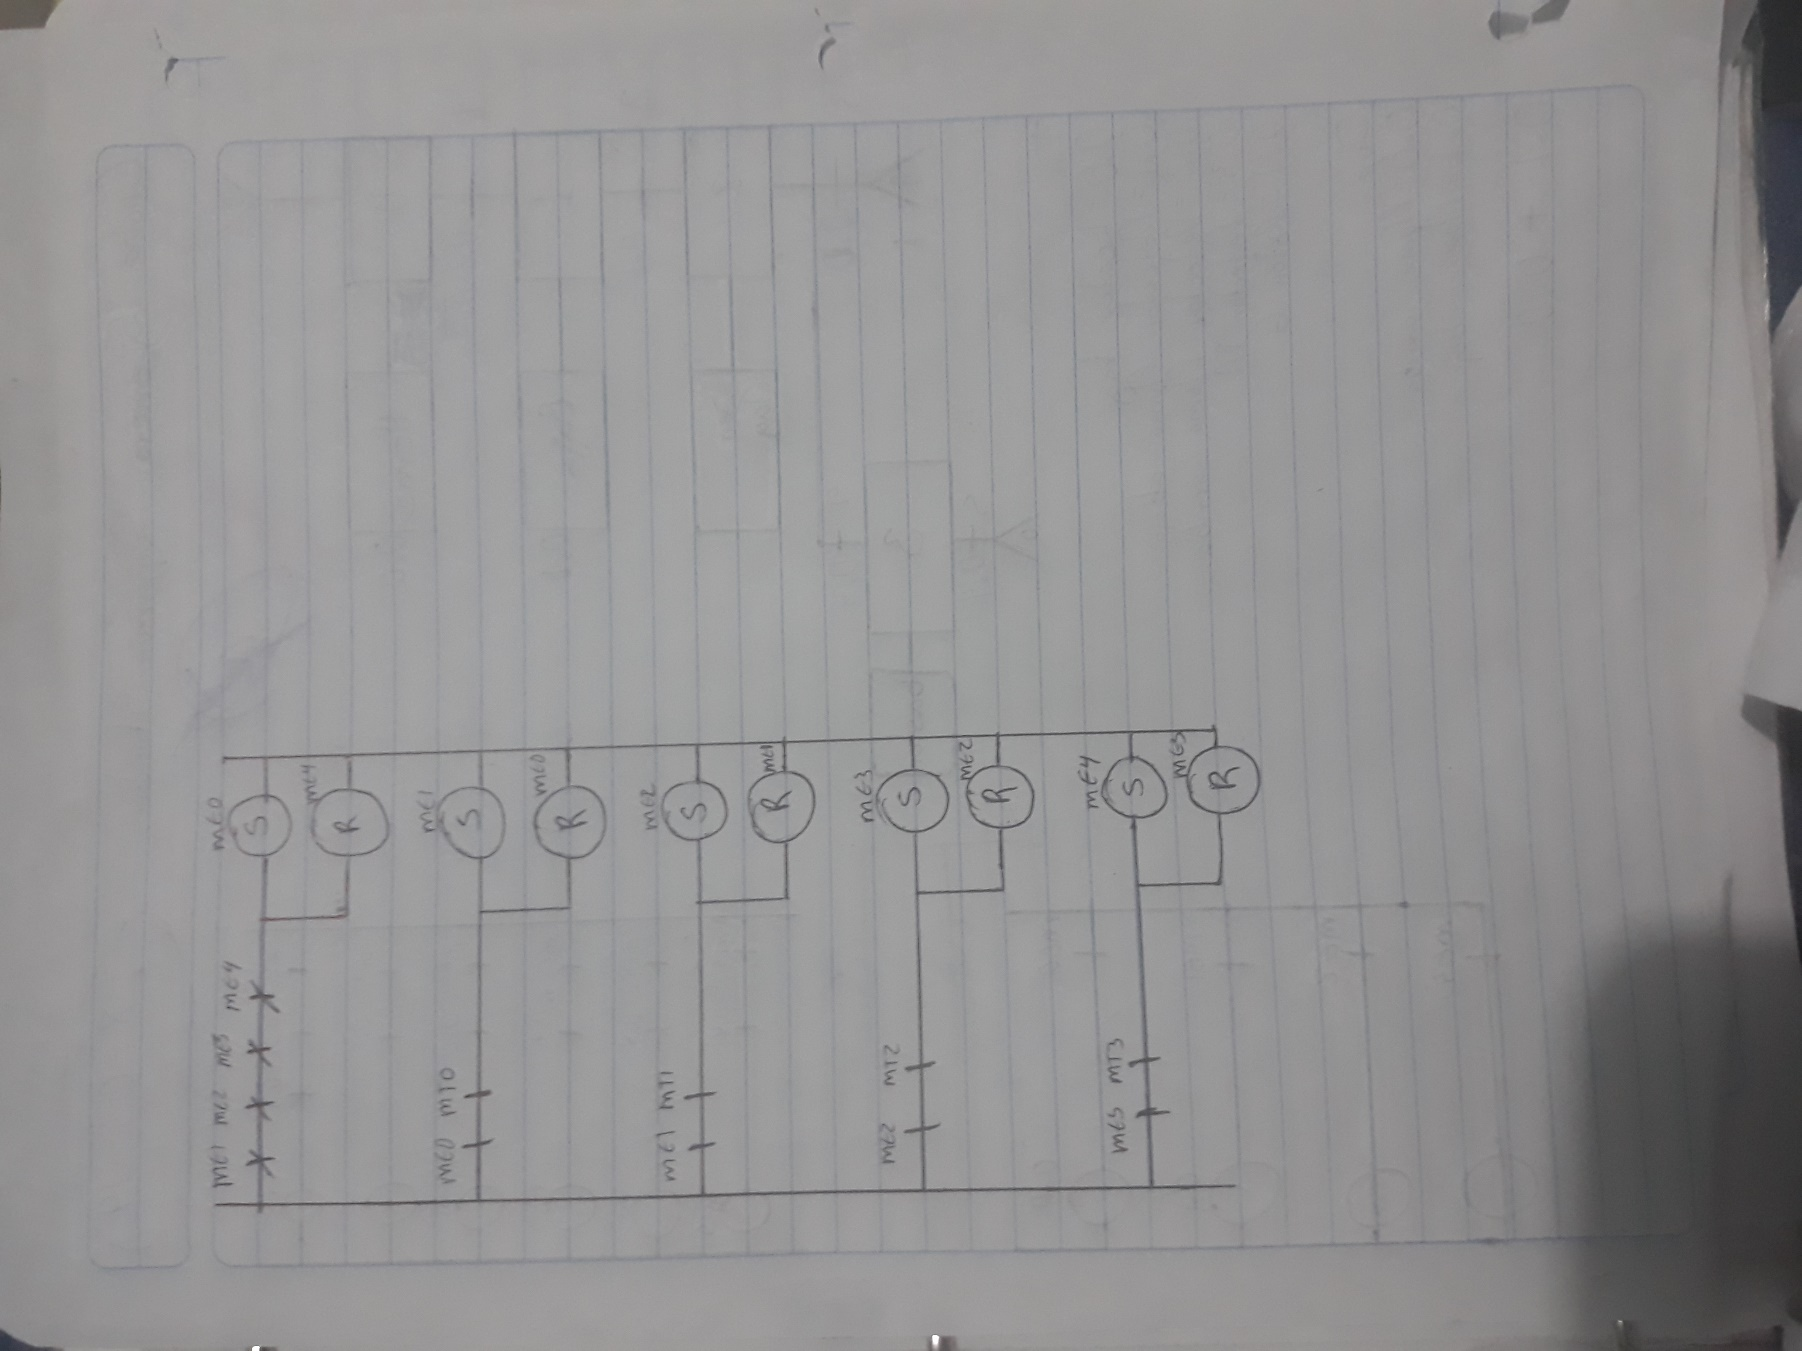 ME1 ME2 ME3 ME4 ME0
S
ME4
R
ME0 MT0 ME1
S
ME0
R
ME1 MT1 ME2
S
ME1
R
ME2 MT2 ME3
S
ME2
R
ME3 MT3 ME4
S
ME3
R